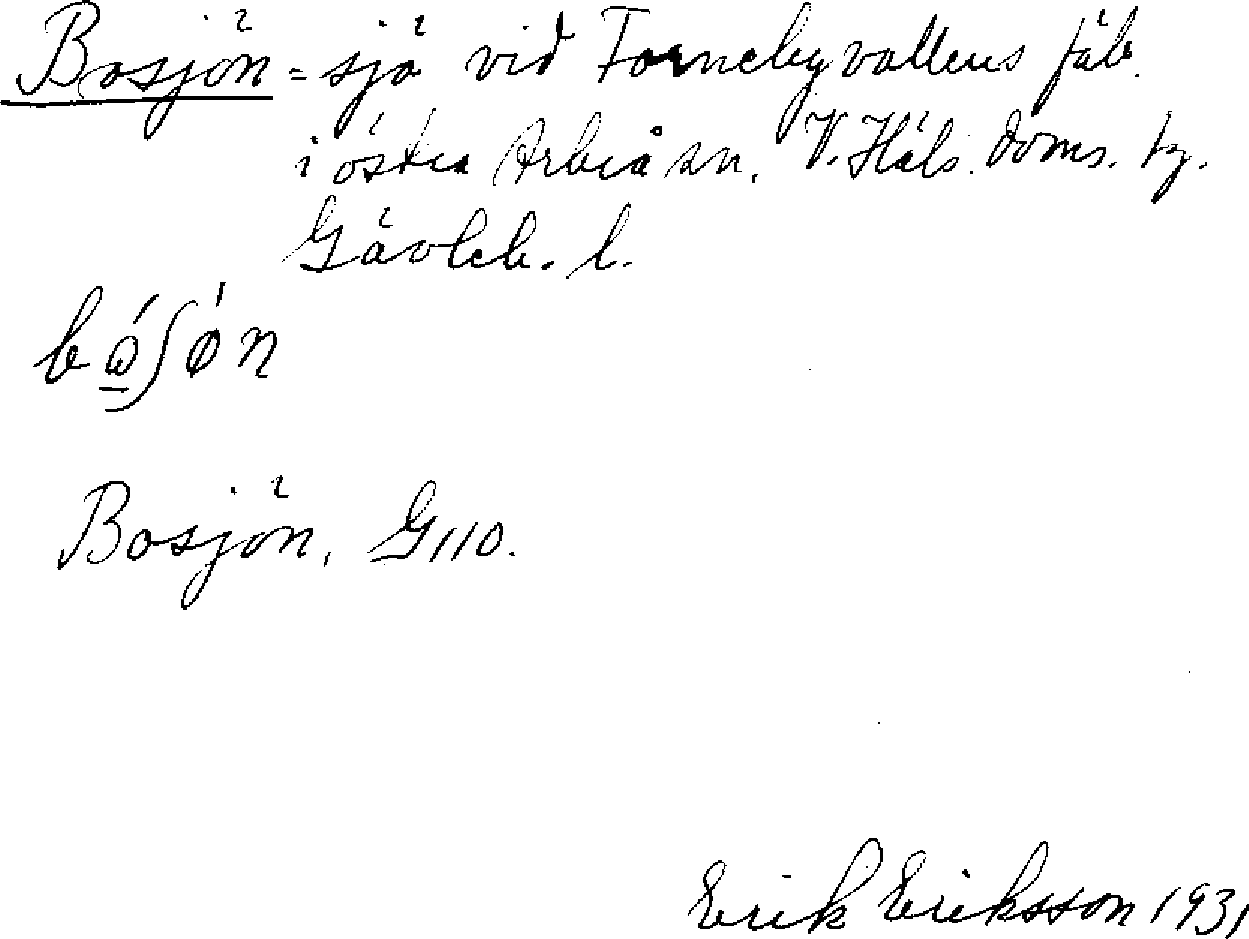 Bosjön = sjö vid Tornebyvallens fäb.
i östra Arbrå sn. V. Häls. doms. tg.
Gävleb. l.
bώ̲ʃøn
Bosjön, G110.
Erik Eriksson 1931